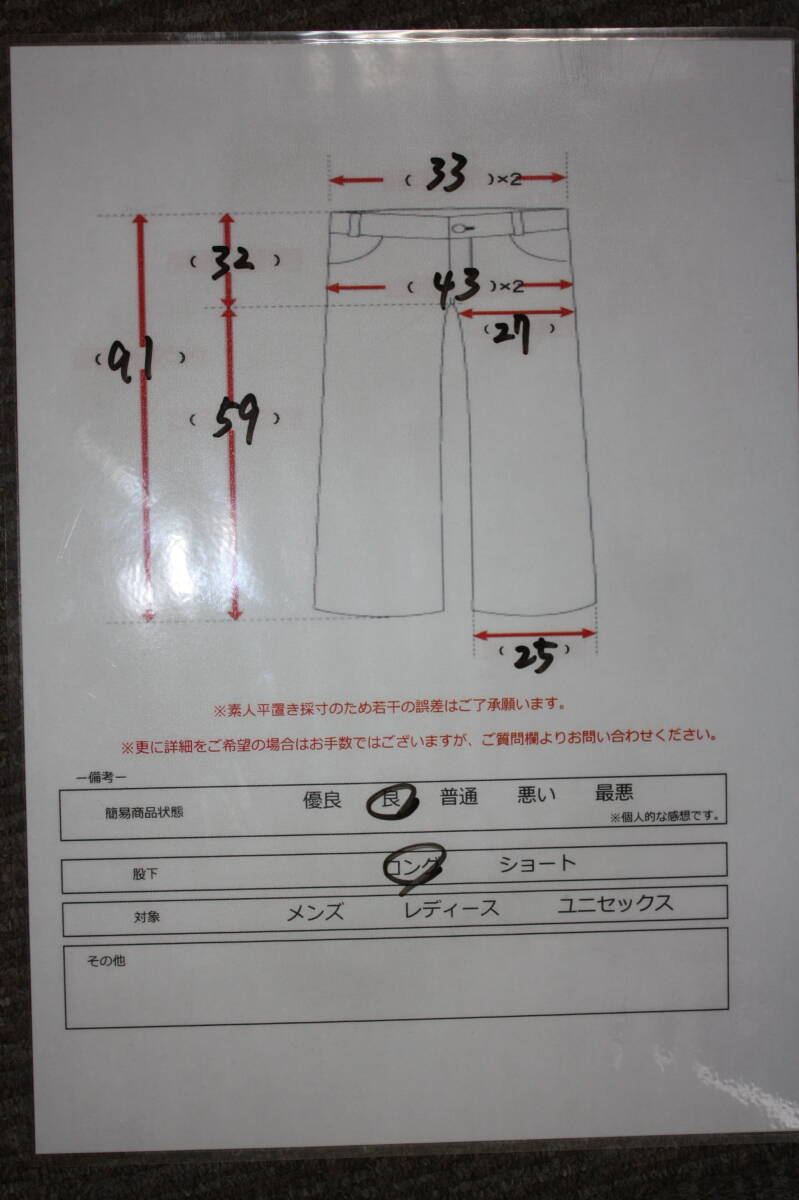 ( 33 )×2
( 32 )
( 43 )×2
( 27 )
( 91 )
( 59 )
( 25 )
※素人平置き採寸のため若干の誤差はご了承願います。
※更に詳細をご希望の場合はお手数ではございますが、ご質問欄よりお問い合わせください。
ー備考ー
簡易商品状態 優良 良 普通 悪い 最悪
※個人的な感想です。
股下 ロング ショート
対象 メンズ レディース ユニセックス
その他